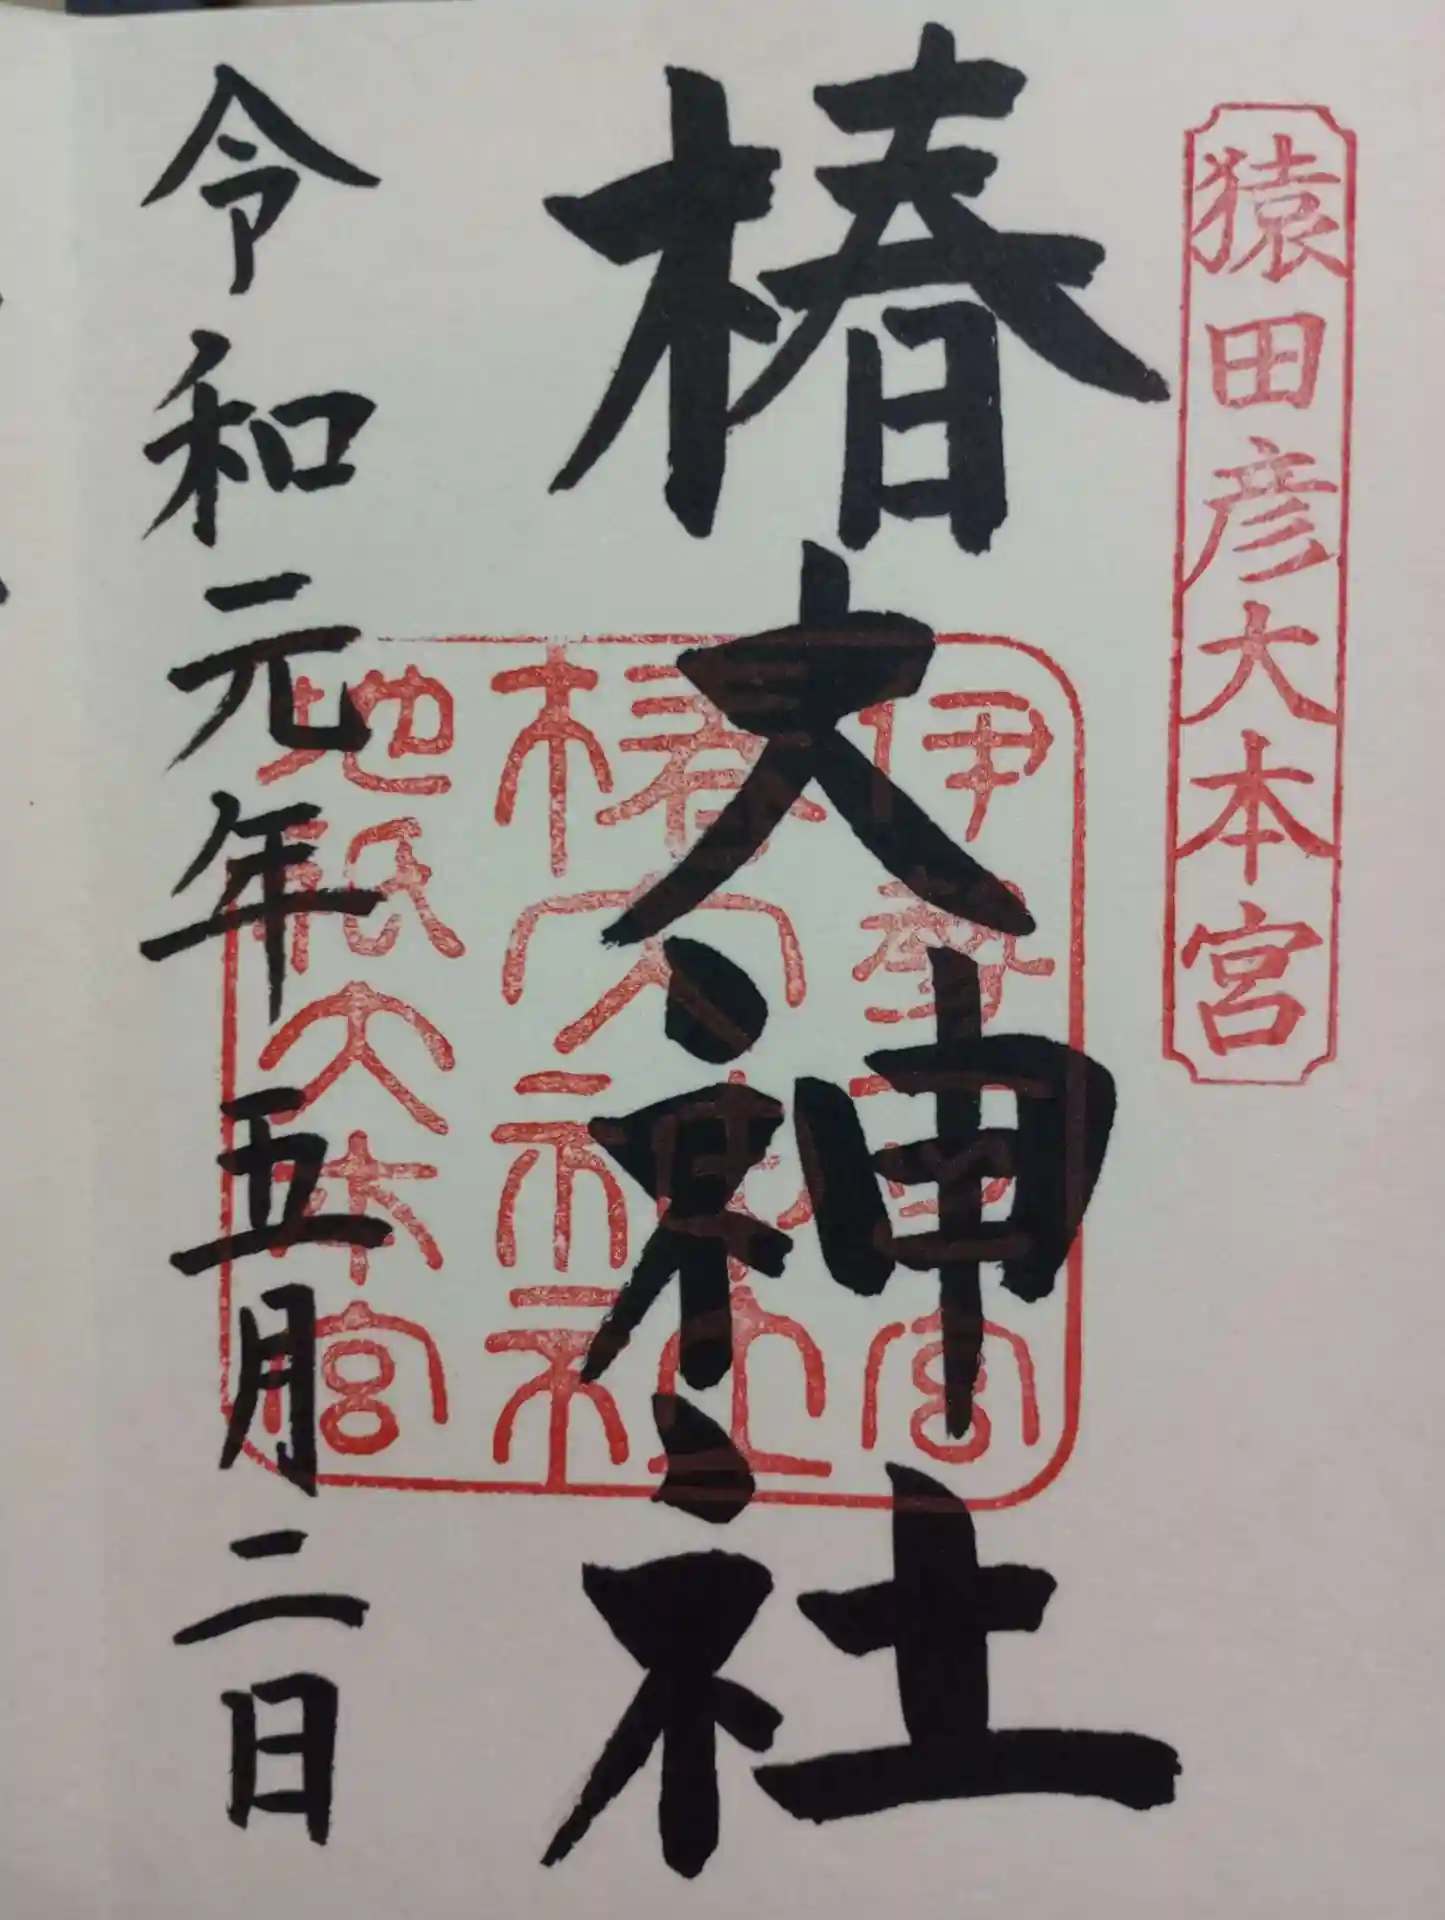 猿田彦大本宮
椿大神社
伊勢一宮
椿大神社
地祇大本宮
令和元年五月二日